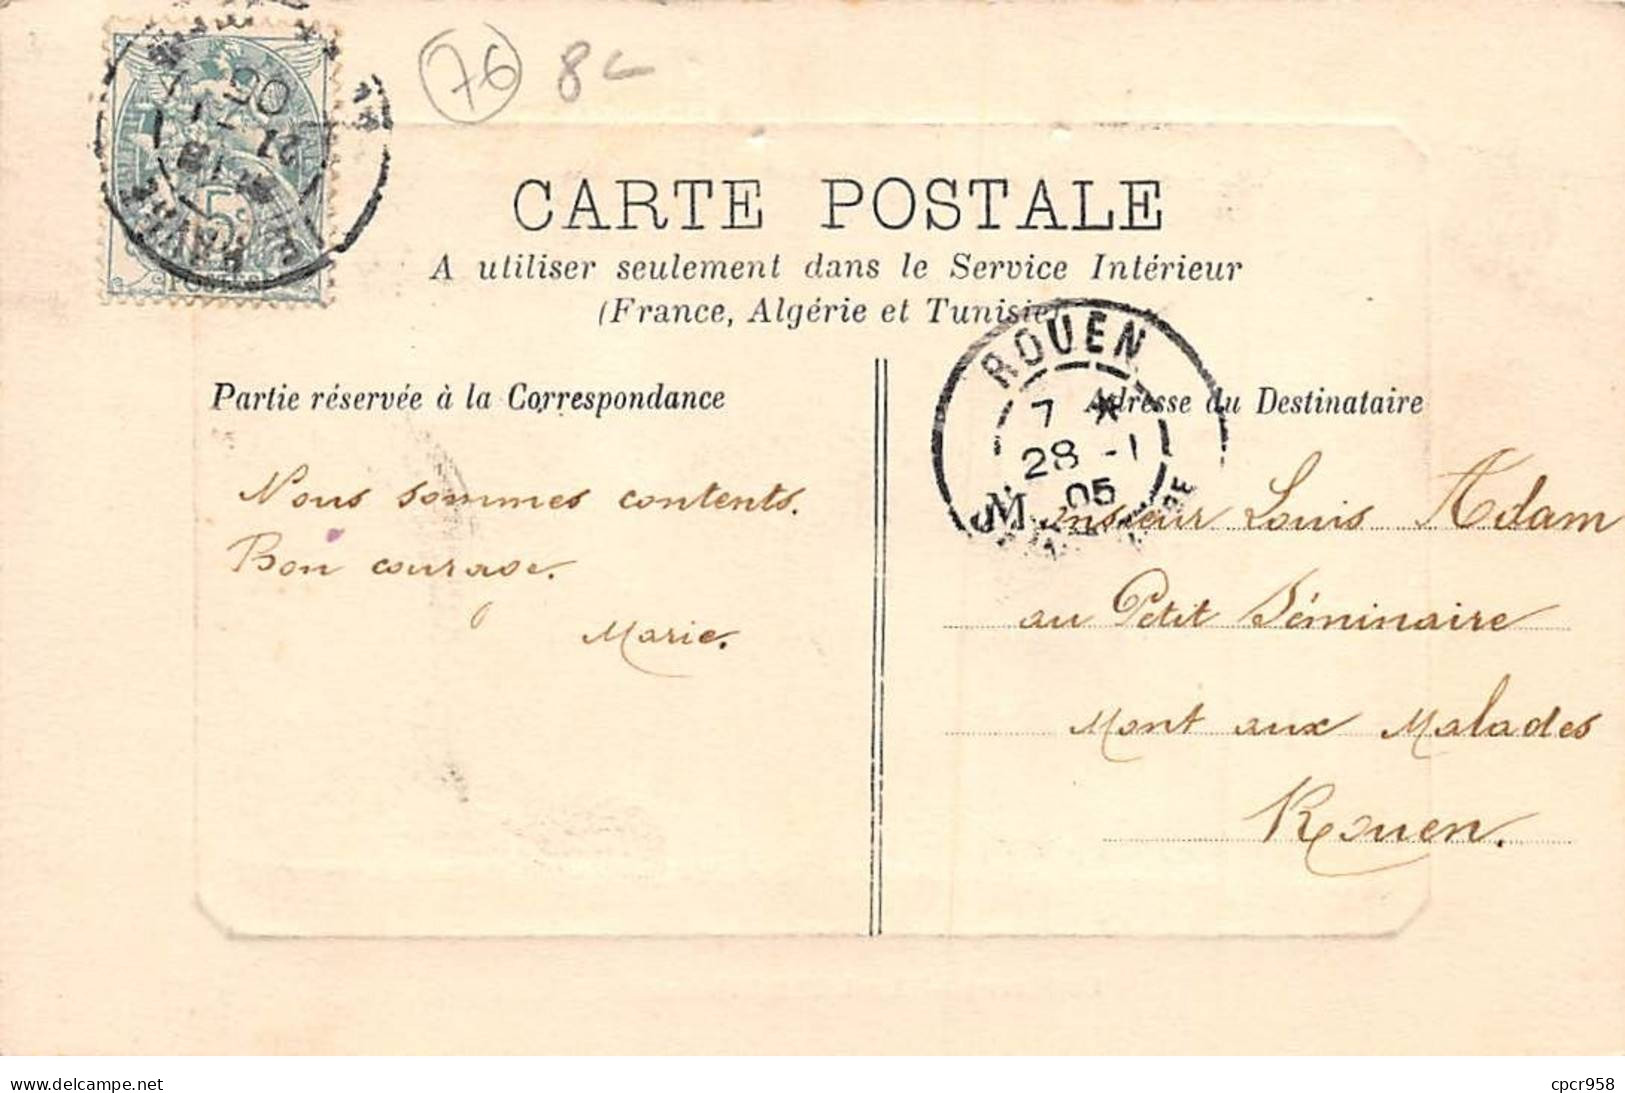 76 8
CARTE POSTALE
A utiliser seulement dans le Service Intérieur
(France, Algérie et Tunisie)
Partie réservée à la Correspondance
Nous sommes contents.
Bon courage.
Marie.
Adresse du Destinataire
Monsieur Louis Adam
au Petit Séminaire
Mont aux Malades
Rouen.
ROUEN
7 *
28 - 1
05
LE HAVRE
21
05
5c
POSTES
delcampe.net
cpcr958